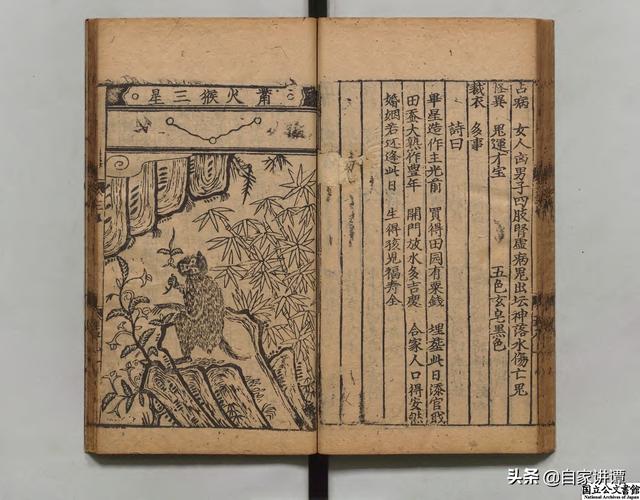 占病 女人凶男子四肢腎虛病鬼出坛神落水傷亡鬼
怪異 鬼運才宝 五色玄皂黑色
裁衣 多事
詩曰
畢星造作主光前 買得田园有粟錢 埋葬此日添官
田蚕大熟作豊年 開門放水多吉慶 合家人口得安然
婚姻若还逢此日 生得孩児福壽全
觜火猴三星
头条 @自家讲谭
国立公文書館
National Archives of Japan